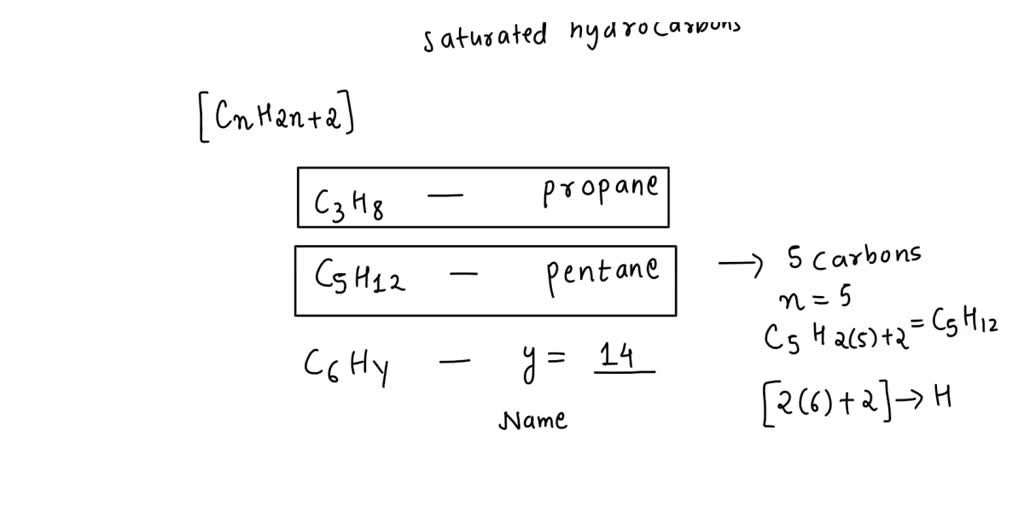 saturated hydrocarbons
[CnH2n+2]
C3H8 — propane
C5H12 — pentane
→ 5 carbons
n = 5
C5H2(5)+2 = C5H12
C6Hy — y = 14
[2(6)+2] → H
Name